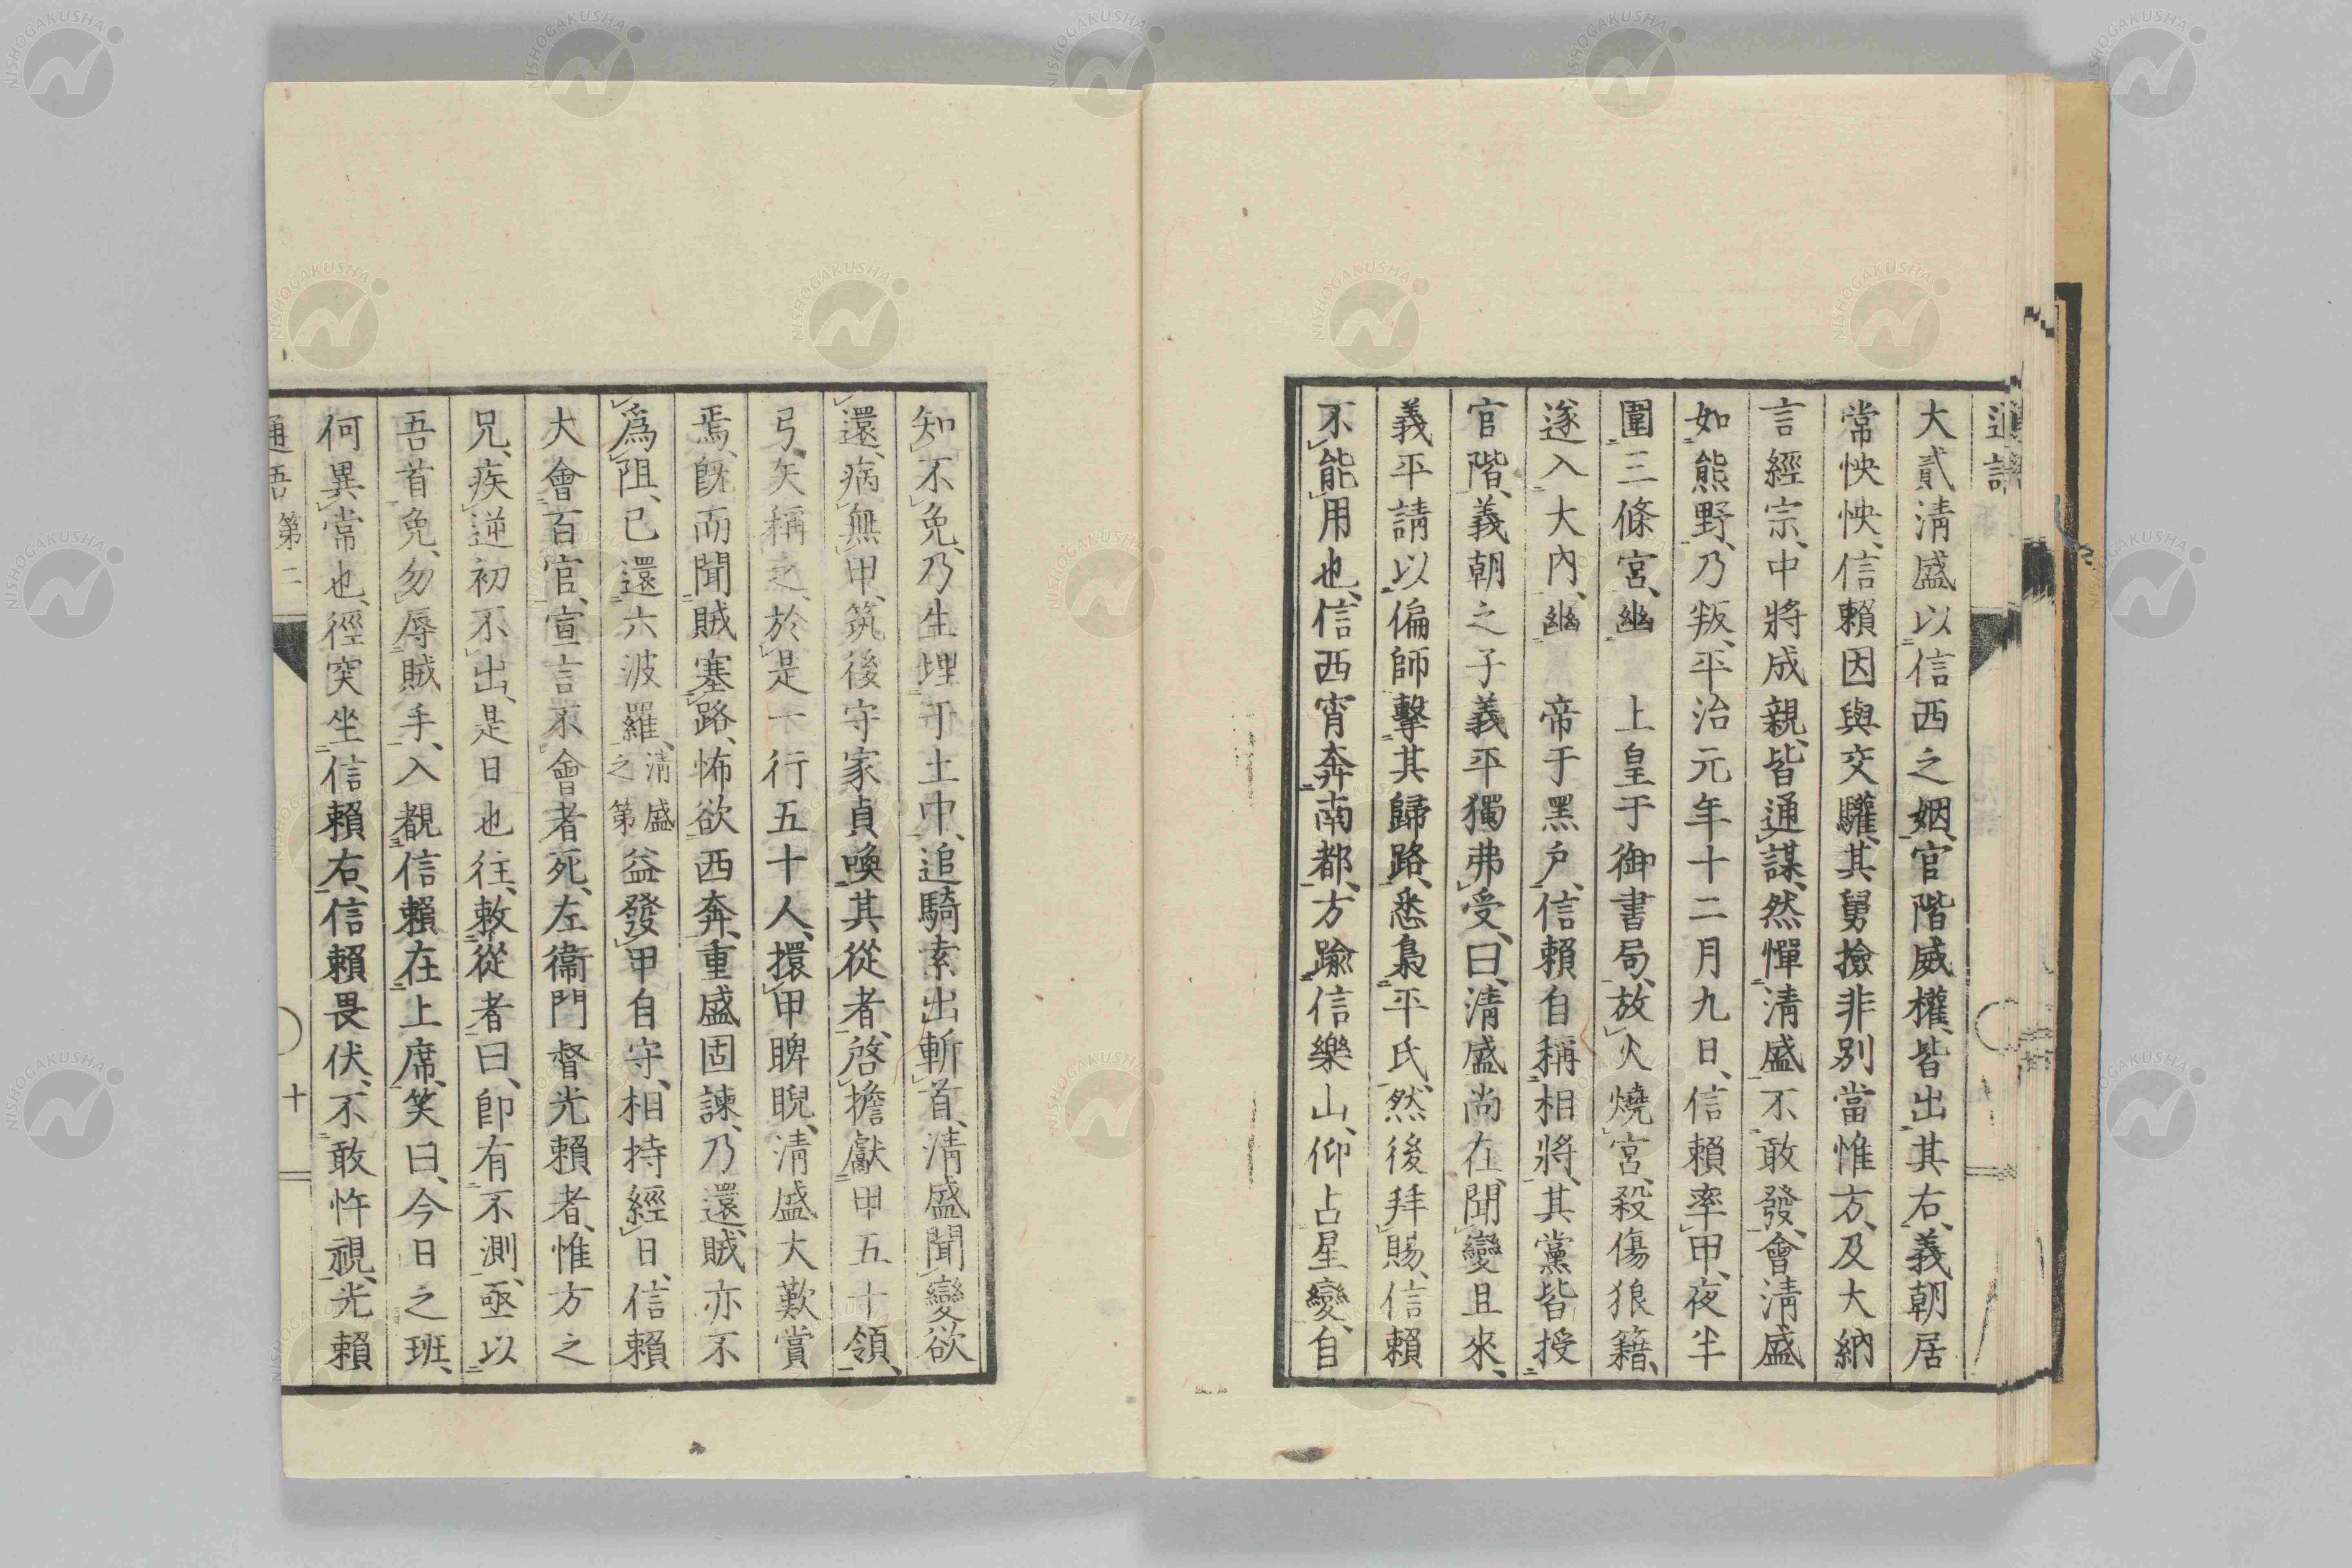 大貳淸盛以信西之姻、官階威權、皆出其右、義朝居
常怏怏、信賴因與交驩、其舅撿非別當惟方、及大納
言經宗、中將成親、皆通謀、然憚淸盛不敢發、會淸盛
如熊野、乃叛、平治元年十二月九日、信賴率甲、夜半
圍三條宮、幽　上皇于御書局、放火燒宮、殺傷狼籍、
遂入大內、幽　帝于黑戶、信賴自稱相將、其黨皆授
官階、義朝之子義平獨弗受、曰、淸盛尚在、聞變且來、
義平請以偏師擊其歸路、悉梟平氏、然後拜賜、信賴
不能用也、信西宵奔南都、方踰信樂山、仰占星變、自
知不免、乃生埋于土中、追騎索出斬首、淸盛聞變欲
還、病無甲、筑後守家貞喚其從者、啓擔獻甲五十領、
弓矢稱之、於是一行五十人、擐甲睥睨、淸盛大歎賞
焉、旣而聞賊塞路、怖欲西奔、重盛固諫、乃還、賊亦不
爲阻、已還六波羅、淸盛之第益發甲自守、相持經日、信賴
大會百官、宣言不會者死、左衞門督光賴者、惟方之
兄、疾逆初不出、是日也往、敕從者曰、卽有不測、亟以
吾首免、勿辱賊手、入覩信賴在上席、笑曰、今日之班、
何異常也、徑突坐信賴右、信賴畏伏、不敢忤視、光賴
通語 第二
十
NISHOGAKUSHA